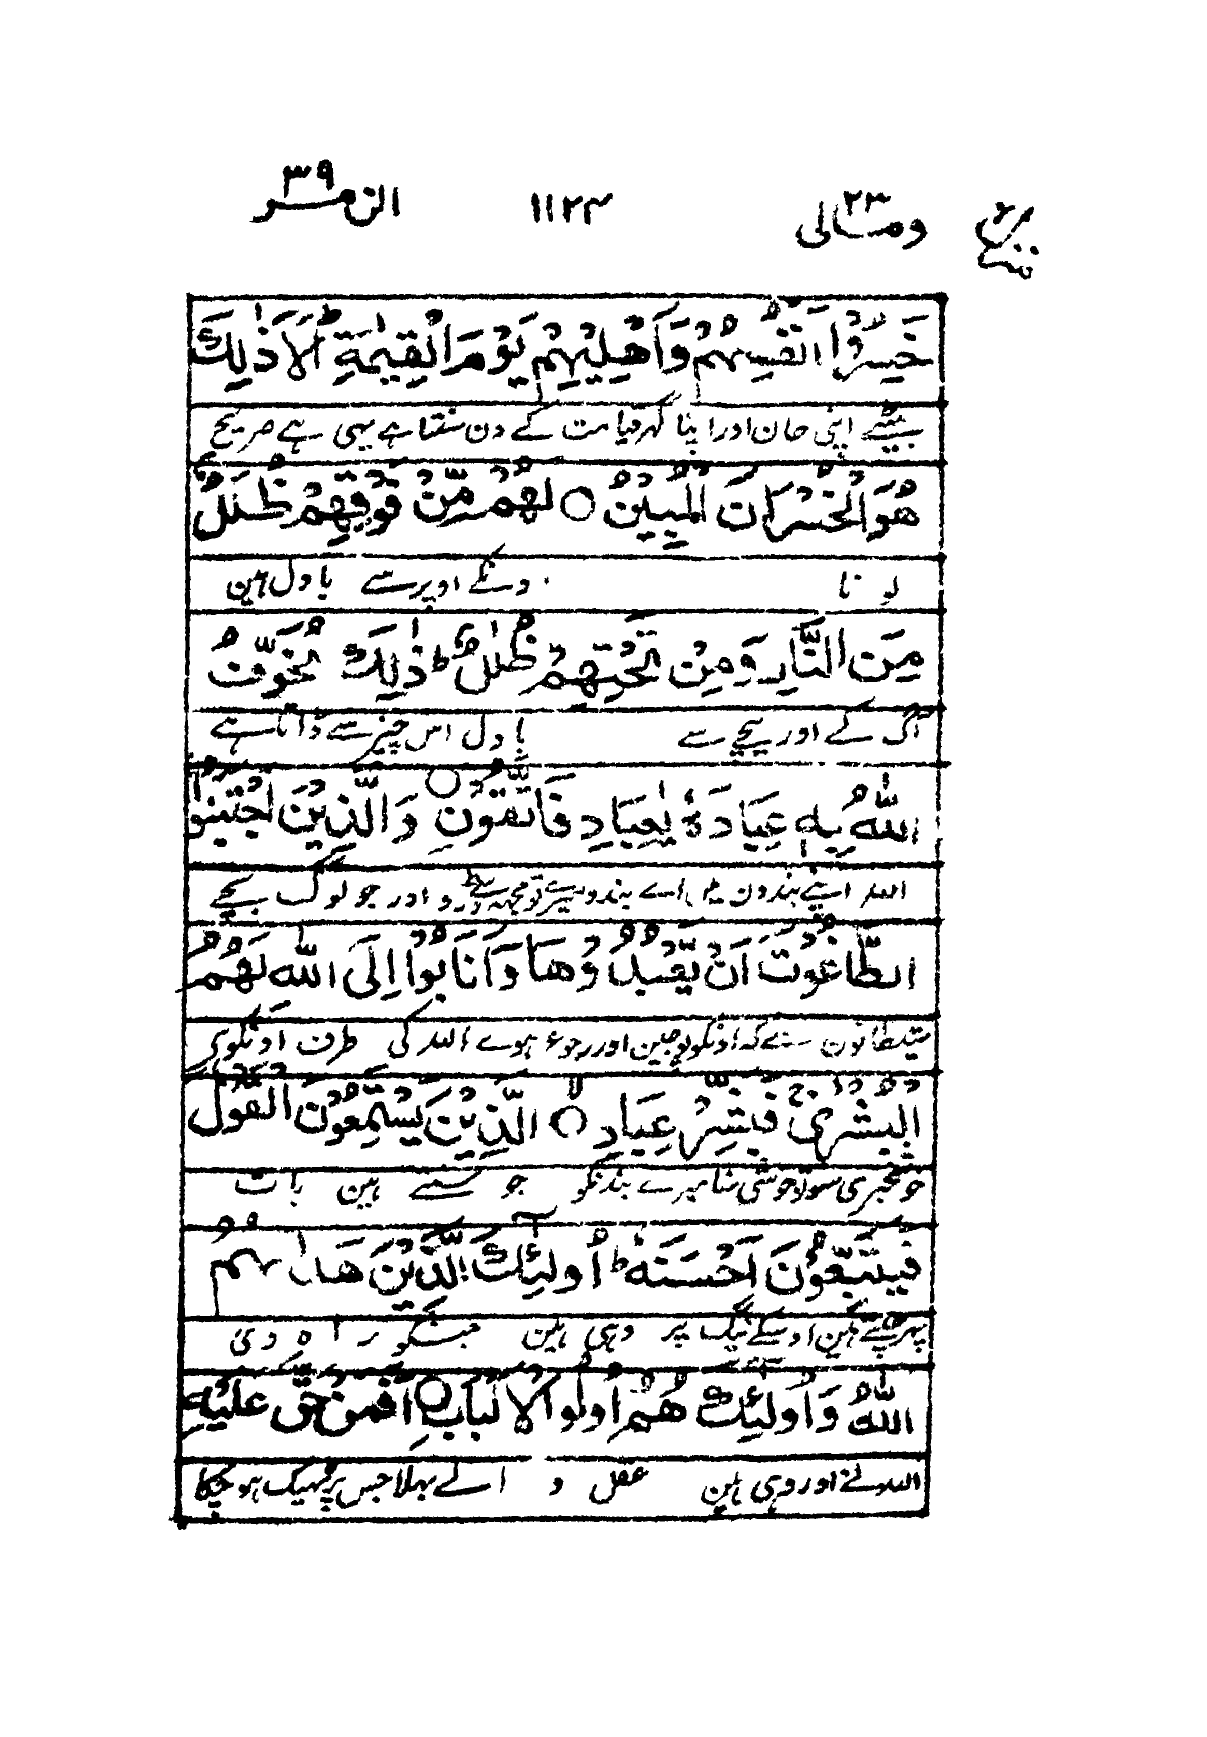 ومالی ۲۳ ۱۱۲۴ الزمر ۳۹
خَسِرُوْۤا اَنْفُسَهُمْ وَاَهْلِيْهِمْ يَوْمَ الْقِيٰمَةِ ؕ اَلَا ذٰلِكَ
بیٹھے اپنی جان اور اپنا گھر قیامت کے دن سنتا ہے یہی ہے صریح
هُوَ الْخُسْرَانُ الْمُبِيْنُ ○ لَهُمْ مِّنْ فَوْقِهِمْ ظُلَلٌ
ٹوٹا اونکے اوپر سے بادل ہین
مِّنَ النَّارِ وَمِنْ تَحْتِهِمْ ظُلَلٌ ؕ ذٰلِكَ يُخَوِّفُ
آگ کے اور نیچے سے بادل اس چیز سے ڈراتا ہے
اللّٰهُ بِهٖ عِبَادَهٗ يٰعِبَادِ فَاتَّقُوْنِ ○ وَالَّذِيْنَ اجْتَنَبُوا
اللہ اپنے بندون اے بندو میرے تو مجہہ سے ڈرو اور جو لوگ بچے
الطَّاغُوْتَ اَنْ يَّعْبُدُوْهَا وَاَنَابُوْۤا اِلَى اللّٰهِ لَهُمُ
شیطانون سے کہ اونکو پوجین اور رجوع ہوے اللہ کی طرف اونکو ہی
الْبُشْرٰى ۚ فَبَشِّرْ عِبَادِ ○ الَّذِيْنَ يَسْتَمِعُوْنَ الْقَوْلَ
خوشخبری سو تو خوشی سنا میرے بندونکو جو سنتے ہین بات
فَيَتَّبِعُوْنَ اَحْسَنَهٗ ؕ اُولٰٓئِكَ الَّذِيْنَ هَدٰىهُمُ
پہر چلتے ہین اوسکے نیک پر وہی ہین جنکو راہ دی
اللّٰهُ وَاُولٰٓئِكَ هُمْ اُولُوا الْاَلْبَابِ ○ اَفَمَنْ حَقَّ عَلَيْهِ
اللہ نے اور وہی ہین عقل والے بہلا جس پر ٹھیک ہو چکا